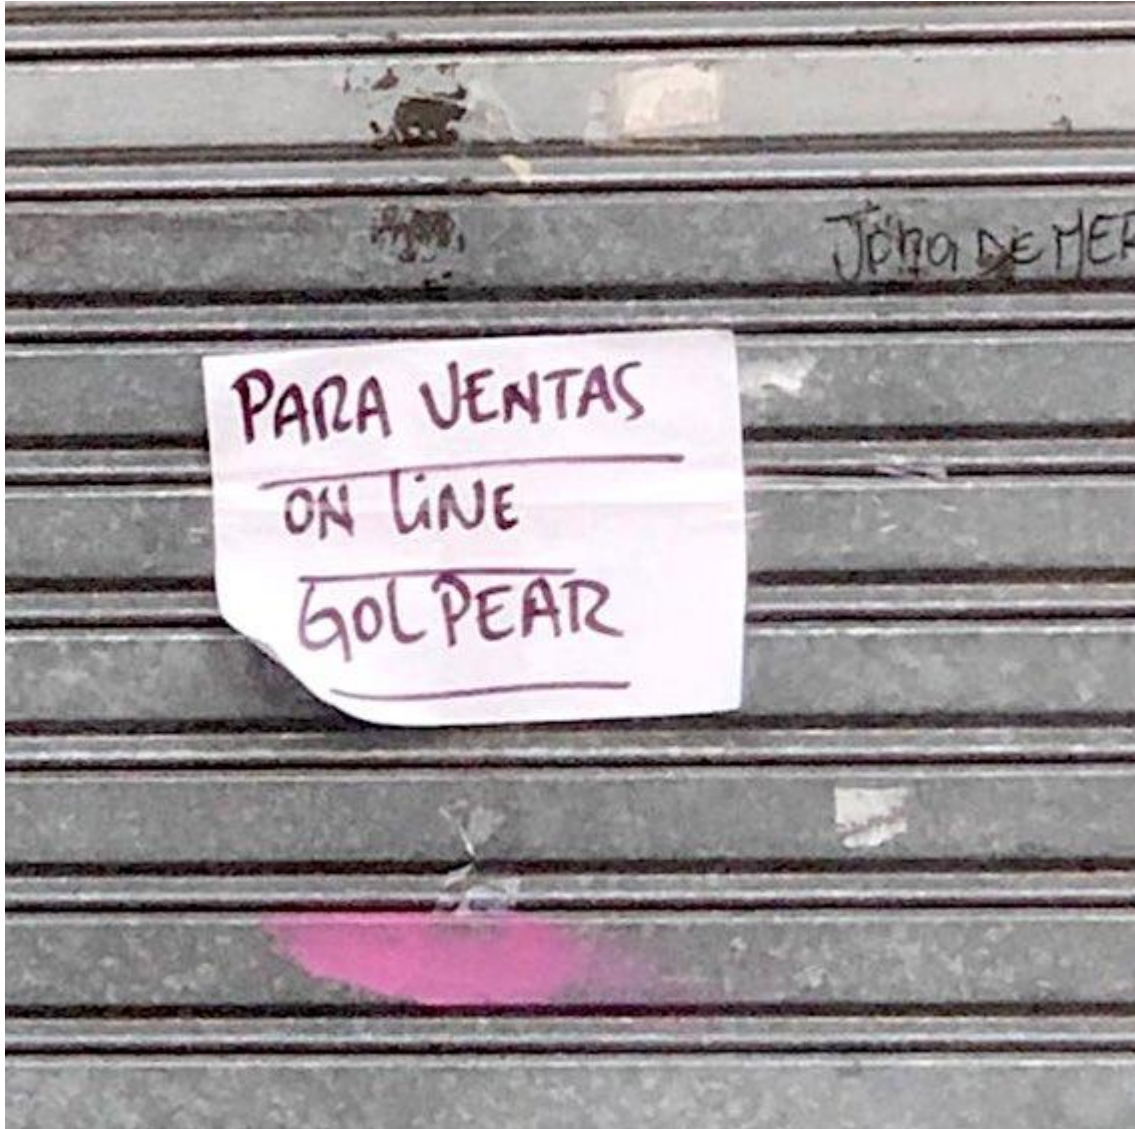 DE MER
PARA VENTAS
ON LiNE
GOLPEAR